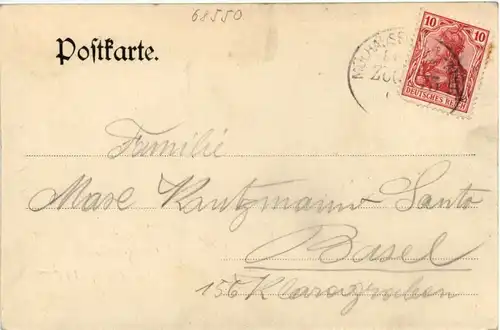 68550
Postkarte.
10 10
DEUTSCHES REICH
Familie
Max Kantzmann-Santo
Basel
156 Klaragraben